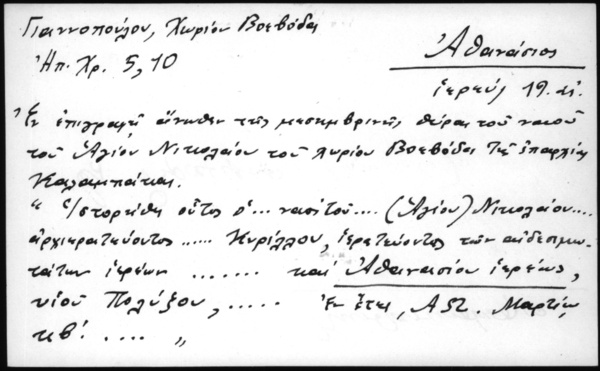 Γιαννοπούλου, Χωρίον Βοεβόδα
Ἠπ. Χρ. 5, 10
Ἀθανάσιος
ἱερεύς 19. αἰ.
Ἐν ἐπιγραφῇ ἄνωθεν τῆς μεσημβρινῆς θύρας τοῦ ναοῦ
τοῦ Ἁγίου Νικολάου τοῦ χωρίου Βοεβόδα τῆς ἐπαρχίας
Καλαμπάκας.
“ Ἱστορήθη οὗτος ὁ... ναὸς τοῦ.... (Ἁγίου) Νικολάου....
ἀρχιερατεύοντος ...... Κυρίλλου, ἱερατεύοντος τῶν αἰδεσιμω-
τάτων ἱερέων ....... καὶ Ἀθανασίου ἱερέως,
υἱοῦ Πολύζου, ..... Ἐν ἔτει, Μαρτίῳ
κβ'. .... „